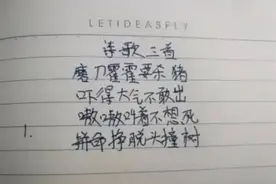 LETIDEASFLY
诗歌三首
磨刀霍霍要杀猪
吓得大气不敢出
嗷嗷叫着不想死
1. 拼命挣脱头撞树